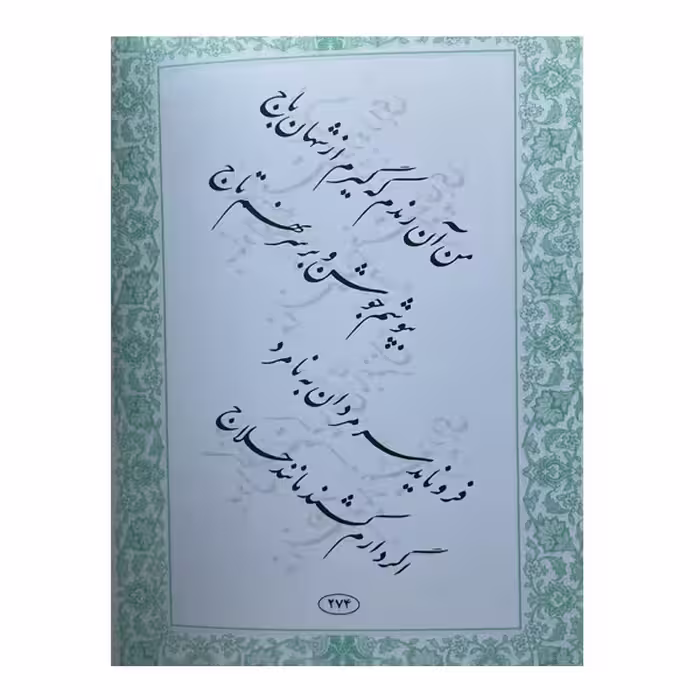 من آن رندم که گیرم از شهان باج
بپوشم جوشن و بر سر نهم تاج
فرو ناید سر مردان به نامرد
اگر دارم کشند مانند حلاج
۲۷۴